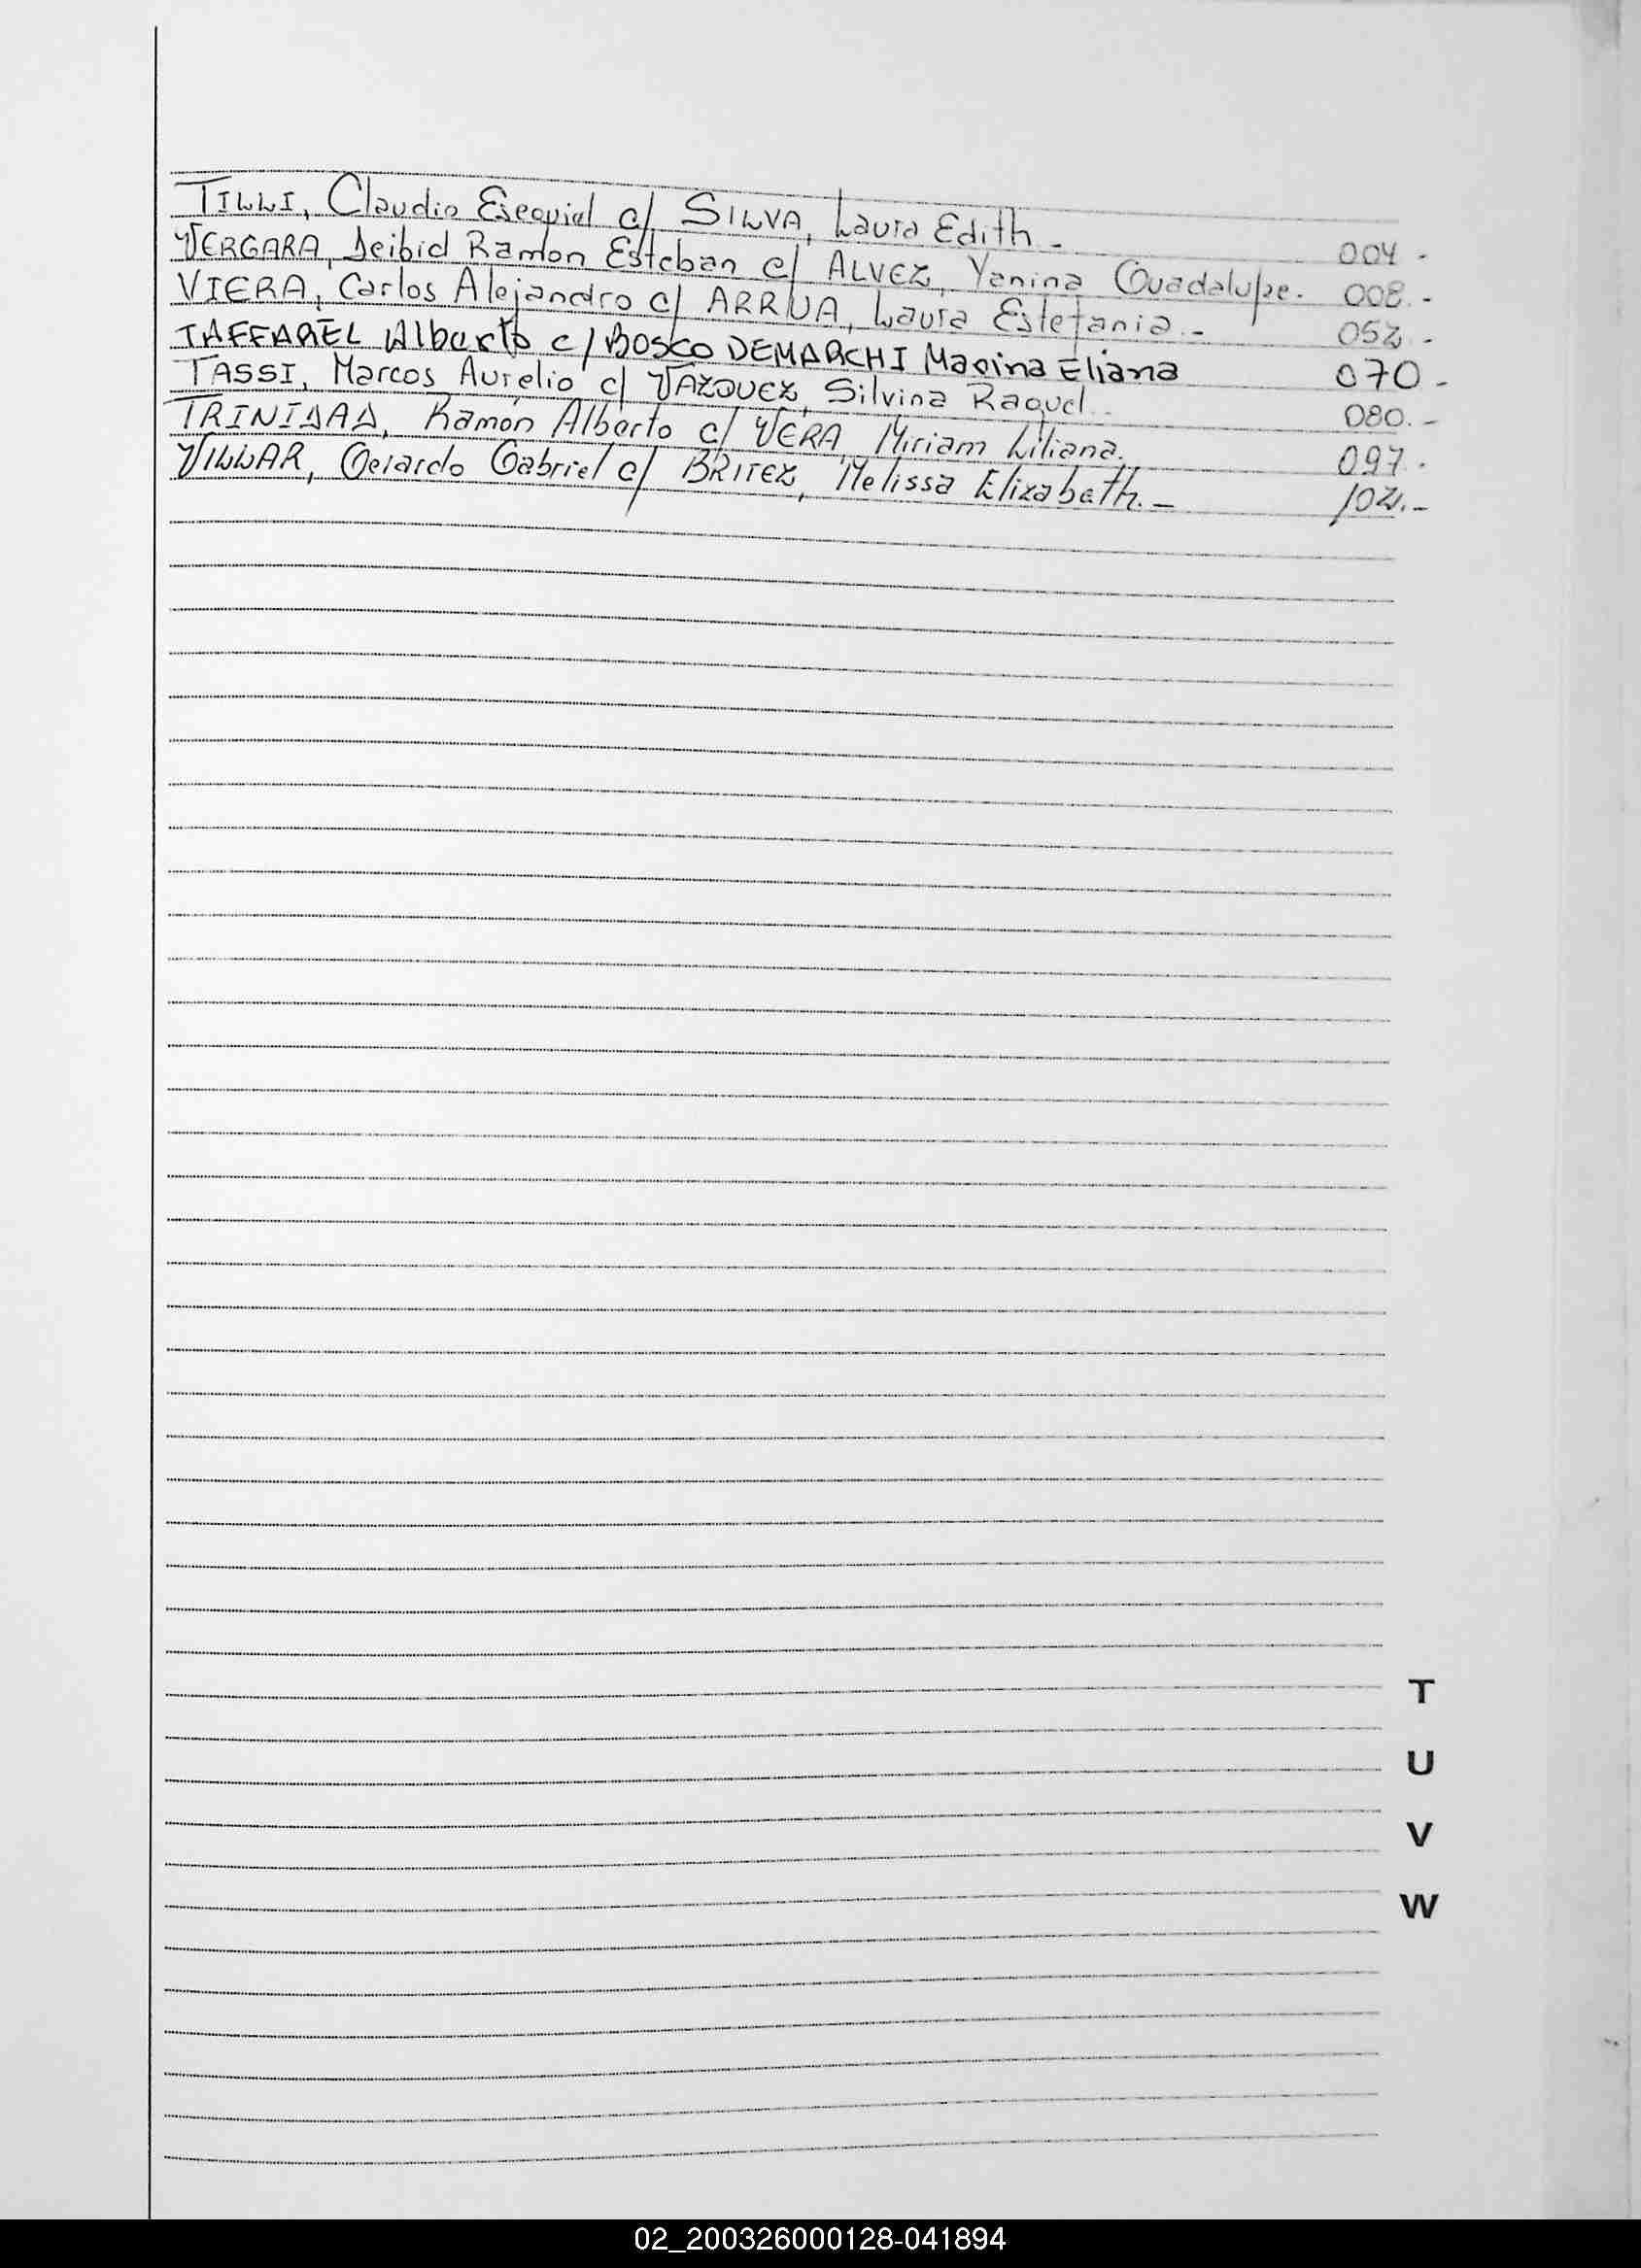 TILLI, Claudio Esequiel c/ SILVA, Laura Edith - 004 -
VERGARA, Deibid Ramón Esteban c/ ALVEZ, Yanina Guadalupe. 008. -
VIERA, Carlos Alejandro c/ ARRUA, Laura Estefania. - 052 -
TAFFAREL Alberto c/ BOSCO DEMARCHI Marina Eliana 070 -
TASSI, Marcos Aurelio c/ VAZQUEZ, Silvina Raquel. 080. -
TRINIDAD, Ramón Alberto c/ VERA, Miriam Liliana. 097 .
VILLAR, Gerardo Gabriel c/ BRITEZ, Melissa Elizabeth. -
T
U
V
W
02_200326000128-041894